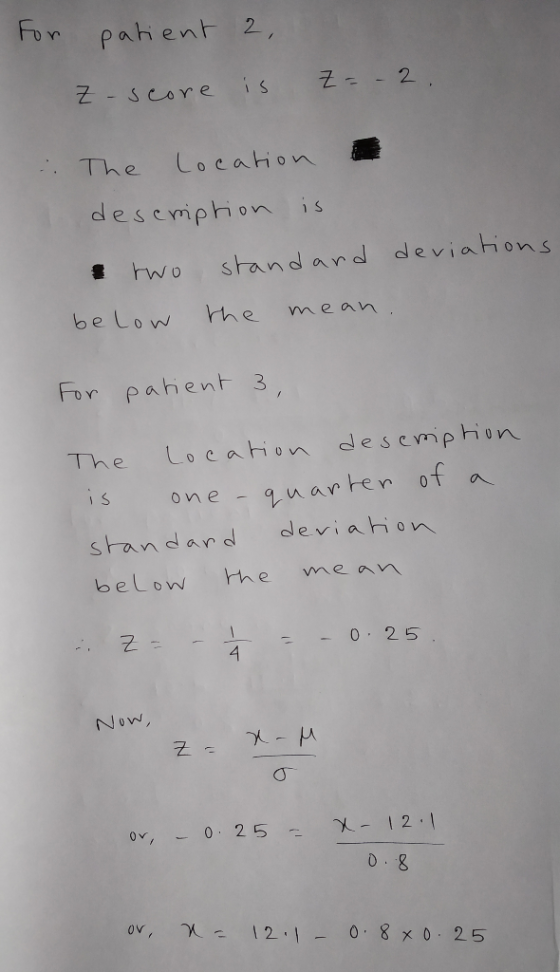 For patient 2,
Z-score is Z = -2.
∴ The location
description is
two standard deviations
below the mean.
For patient 3,
The location description
is one-quarter of a
standard deviation
below the mean
∴ Z = - 1/4 = - 0.25.
Now,
Z = (x - μ)/σ
or, - 0.25 = (x - 12.1)/0.8
or, x = 12.1 - 0.8 × 0.25